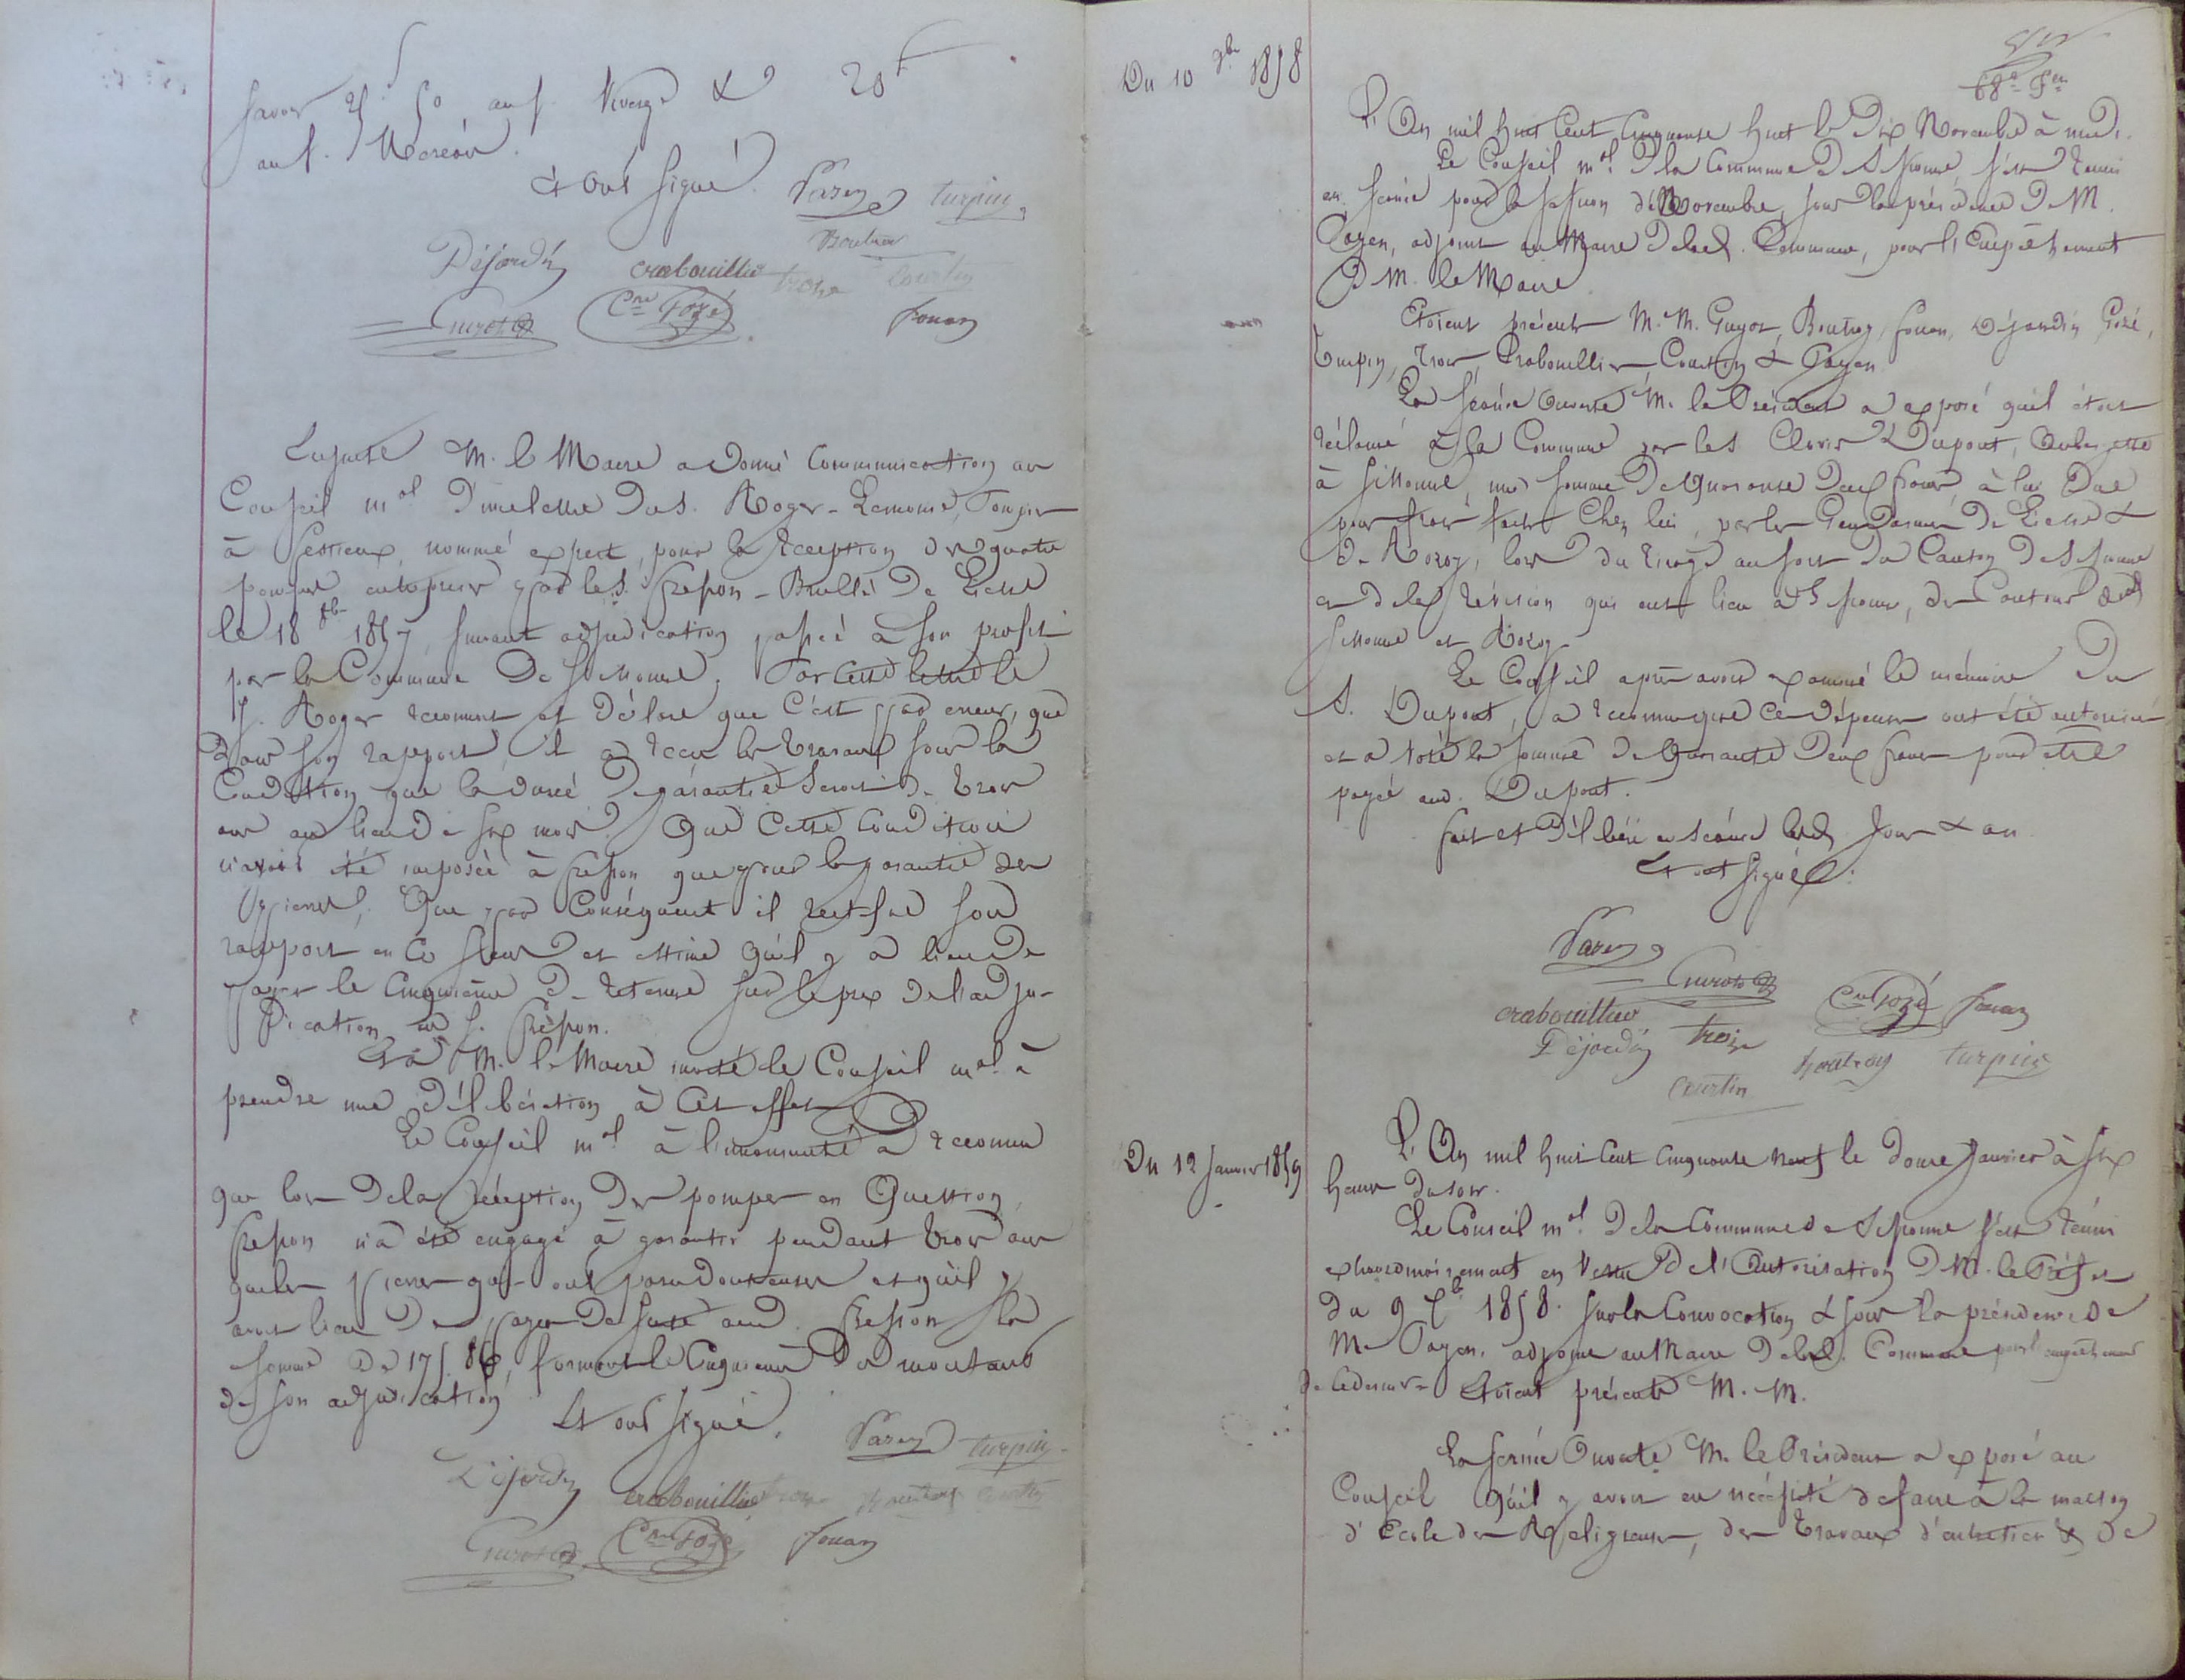 Savoir 2f. 50 au s. Vivergé & 20f
au s. Marcou.
Et ont signé. Payen turpin
Boutroy
Déjardin crabouillier troize Courtin
Guyot Cre Gozé fouan
Ensuite M. le Maire a donné communication au
Conseil mal d'une lettre du s. Roger-Lemoine, Pompier
à Festieux, nommé expert, pour la réception des quatre
pompes entreprises par le s. Frepon-Brullé de Liesse
le 18 8bre 1857, suivant adjudication passée à son profit
par la Commune de Sissonne. Par cette lettre le
s. Roger reconnait et déclare que c'est par erreur, que
dans son rapport, il a reçu les travaux sous la
Condition que la durée de garantie serait de trois
ans au lieu de six mois. Que cette condition
n'avait été imposée à frepon que pour la garantie des
pierres, Que par Conséquent il rectifie son
rapport en ce sens et estime qu'il y a lieu de
payer le cinquième de retenue sur le prix de l'adju-
dication au s. frépon.
M. le Maire invite le Conseil mal à
prendre une délibération à cet effet.
Le Conseil mal à l'unanimité a reconnu
que lors de la réception des pompes en Question,
frepon n'a été engagé à garantir pendant trois ans
que les pierres qui ont paru douteuses et qu'il y
avait lieu de payer de suite aud. Frepon la
somme de 175f. 86, formant le Cinquième du montant
de son adjudication
Et ont signé. Payen turpin
Déjardin crabouillier troize Boutroy Courtin
Guyot Cre Gozé fouan
Du 10 9bre 1858
68e Fet
L'An mil huit cent Cinquante huit le Dix Novembre à midi.
Le Conseil mal de la Commune de Sissonne, s'est réuni
en séance pour la session de Novembre, sous la présidence de M.
Payen, adjoint au Maire de lad. Commune, pour l'Empêchement
de M. le Maire.
Etoient présents M. M. Guyot, Boutroy, fouan, Déjardin, Gozé,
Turpin, Troize, Crabouillier, Courtin & Payen
La séance ouverte M. le Président a exposé qu'il était
réclamé à la Commune par le s. Clovis Dupont, Aubergiste
à Sissonne, une somme de Quarante deux francs, à lui due
pour frais faits chez lui, par les Gendarmes de Liesse &
de Rozoy, lors du tirage au sort du Canton de Sissonne
et de la révision qui eut lieu à Sissonne, des Cantons de
Sissonne et Rozoy
Le Conseil après avoir examiné le mémoire du
S. Dupont, a reconnu que ces dépenses ont été autorisées
et a voté la somme de Quarante deux francs pour être
payée aud. Dupont.
fait et délibéré en séance lesd. jour & an
Et ont signé.
Payen
Guyot
crabouillier Cre Gozé fouan
Déjardin troize Boutroy turpin
Courtin
Du 12 Janvier 1859
L'An mil huit cent cinquante neuf le douze Janvier à six
heures du soir.
Le Conseil mal de la Commune de Sissonne s'est réuni
extraordinairement en vertu de l'Autorisation de M. le Préfet
du 9 1858. sur la Convocation & sous la présidence de
M. Payen, adjoint au Maire de lad. Commune pour l'empêchement
de ce dernier Etoient présents M. M.
La séance Ouverte M. le Président a exposé au
Conseil qu'il y avait eu nécessité de faire à la maison
d'Ecole des Religieuses, des travaux d'entretien & de